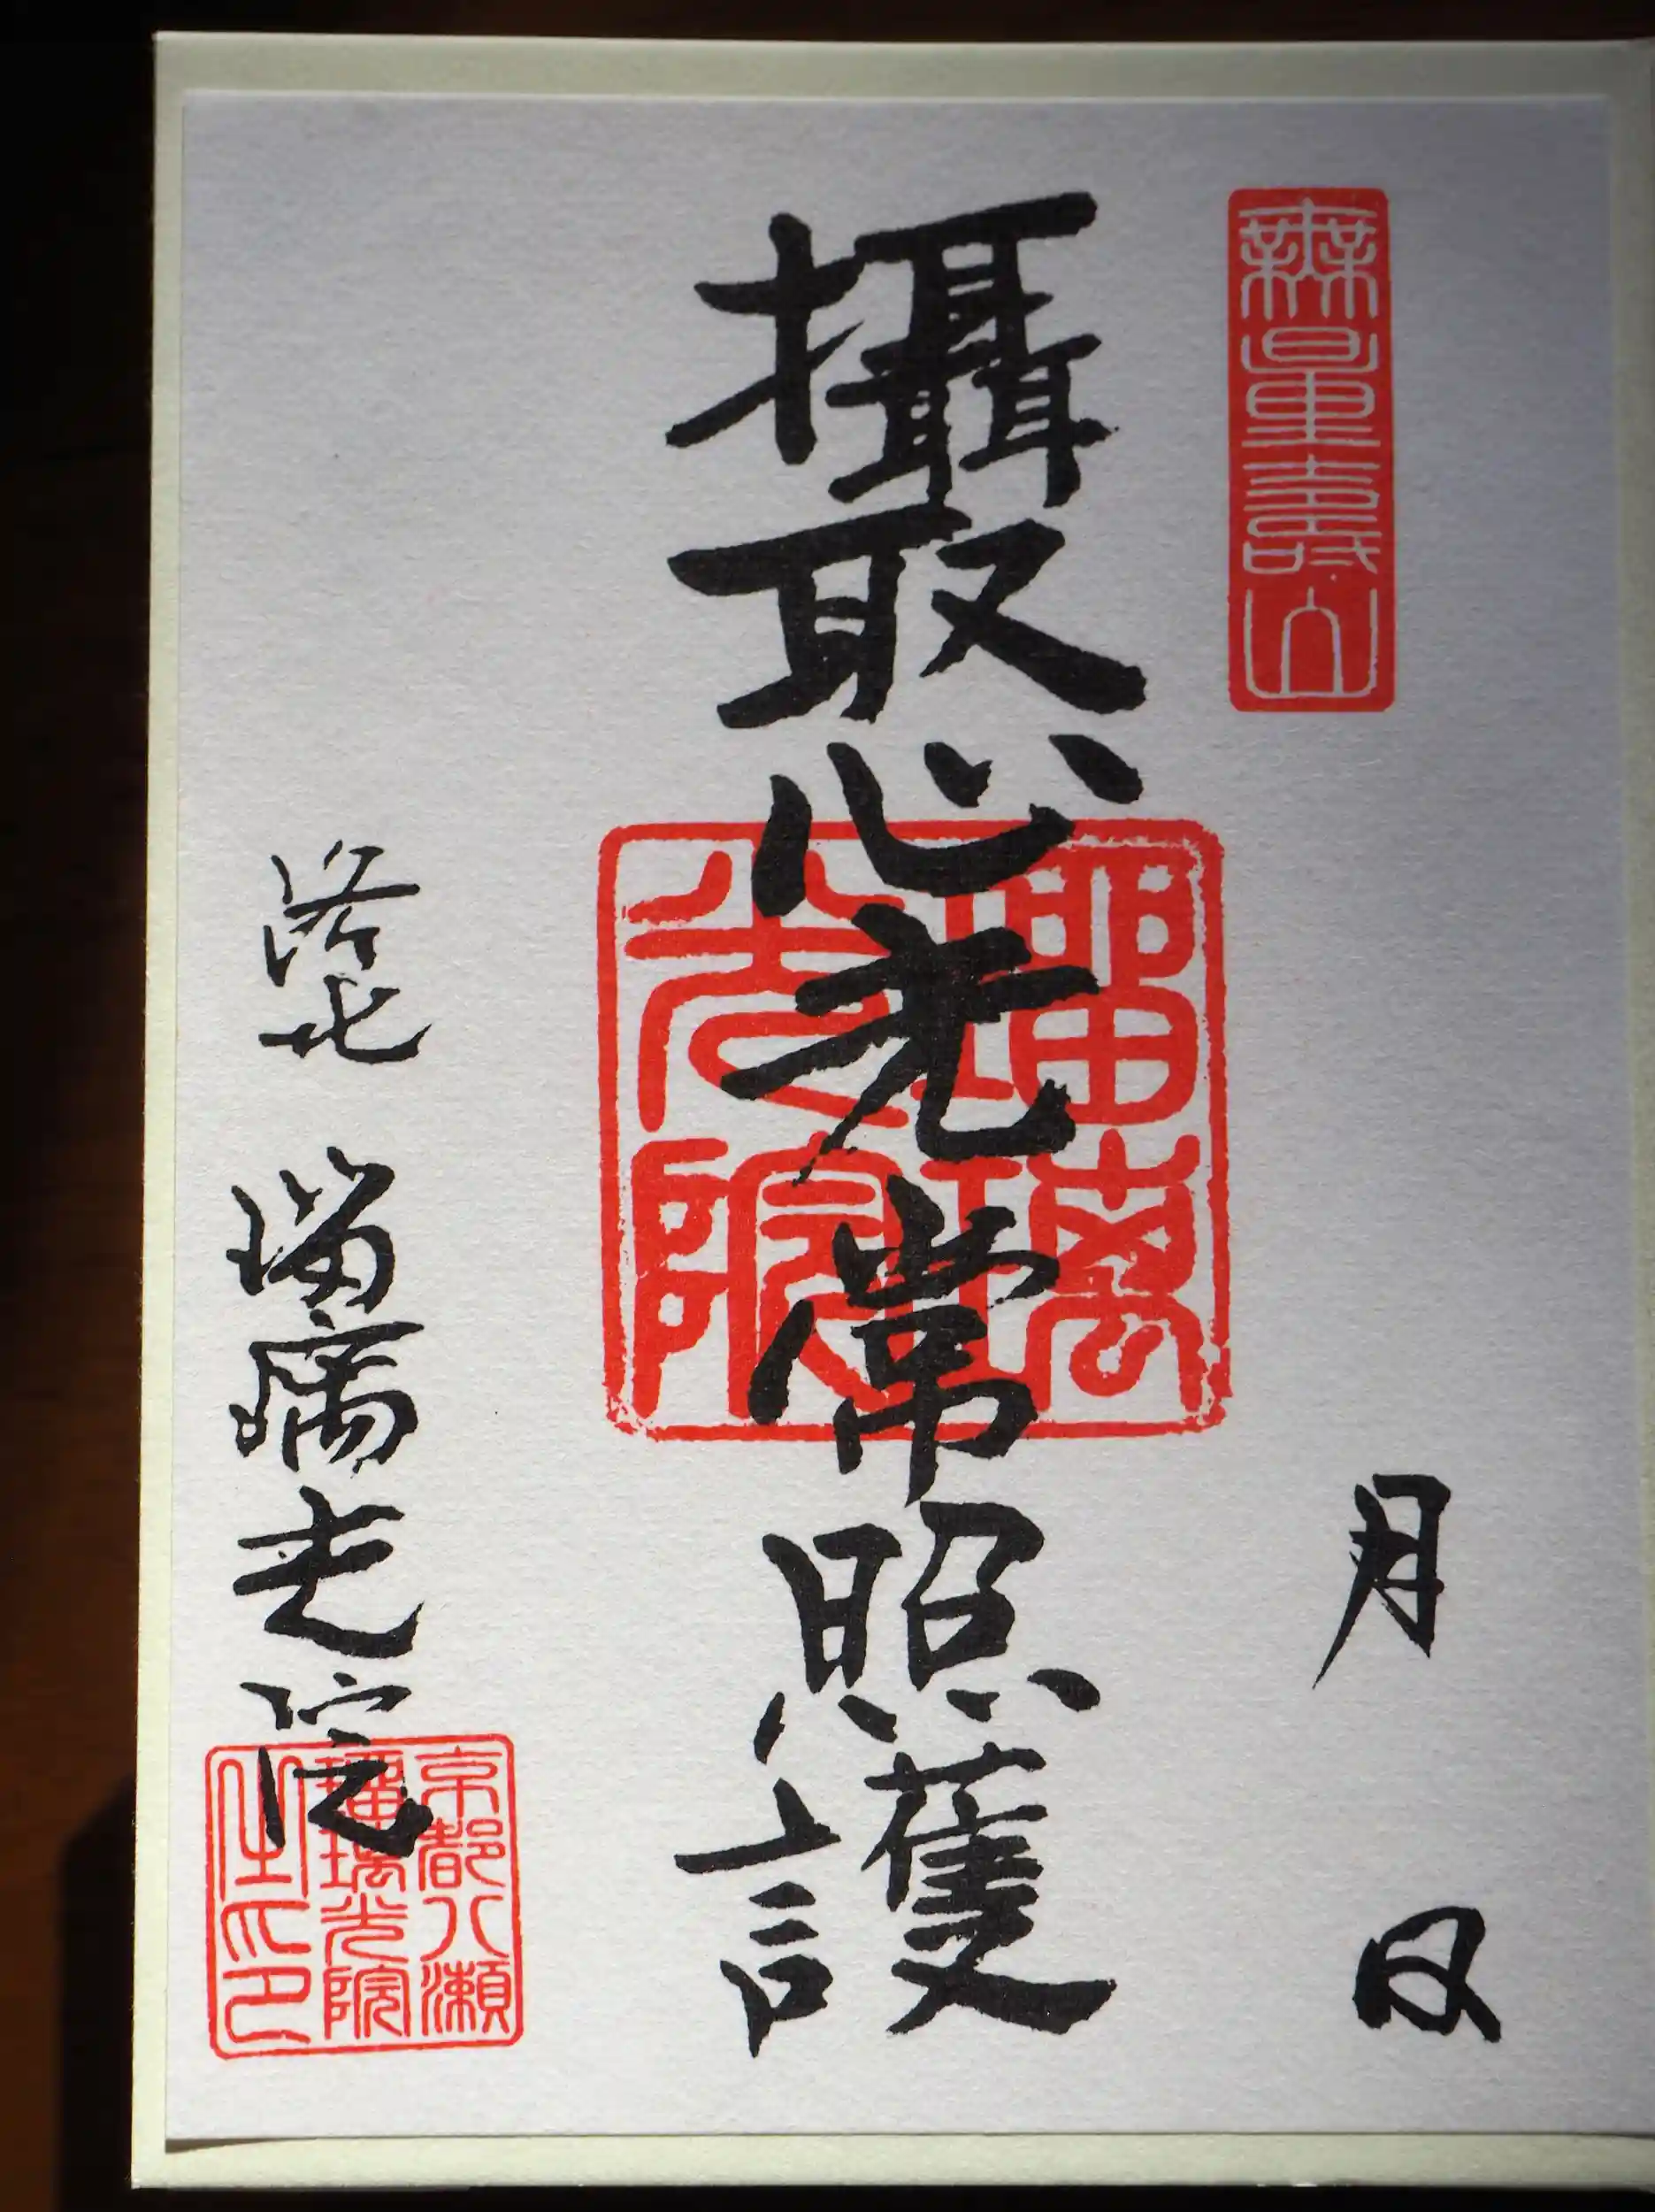 無量壽山
月 日
攝取心光常照護
瑠璃光院
洛北 瑠璃光院
京都八瀬
瑠璃光院
主印